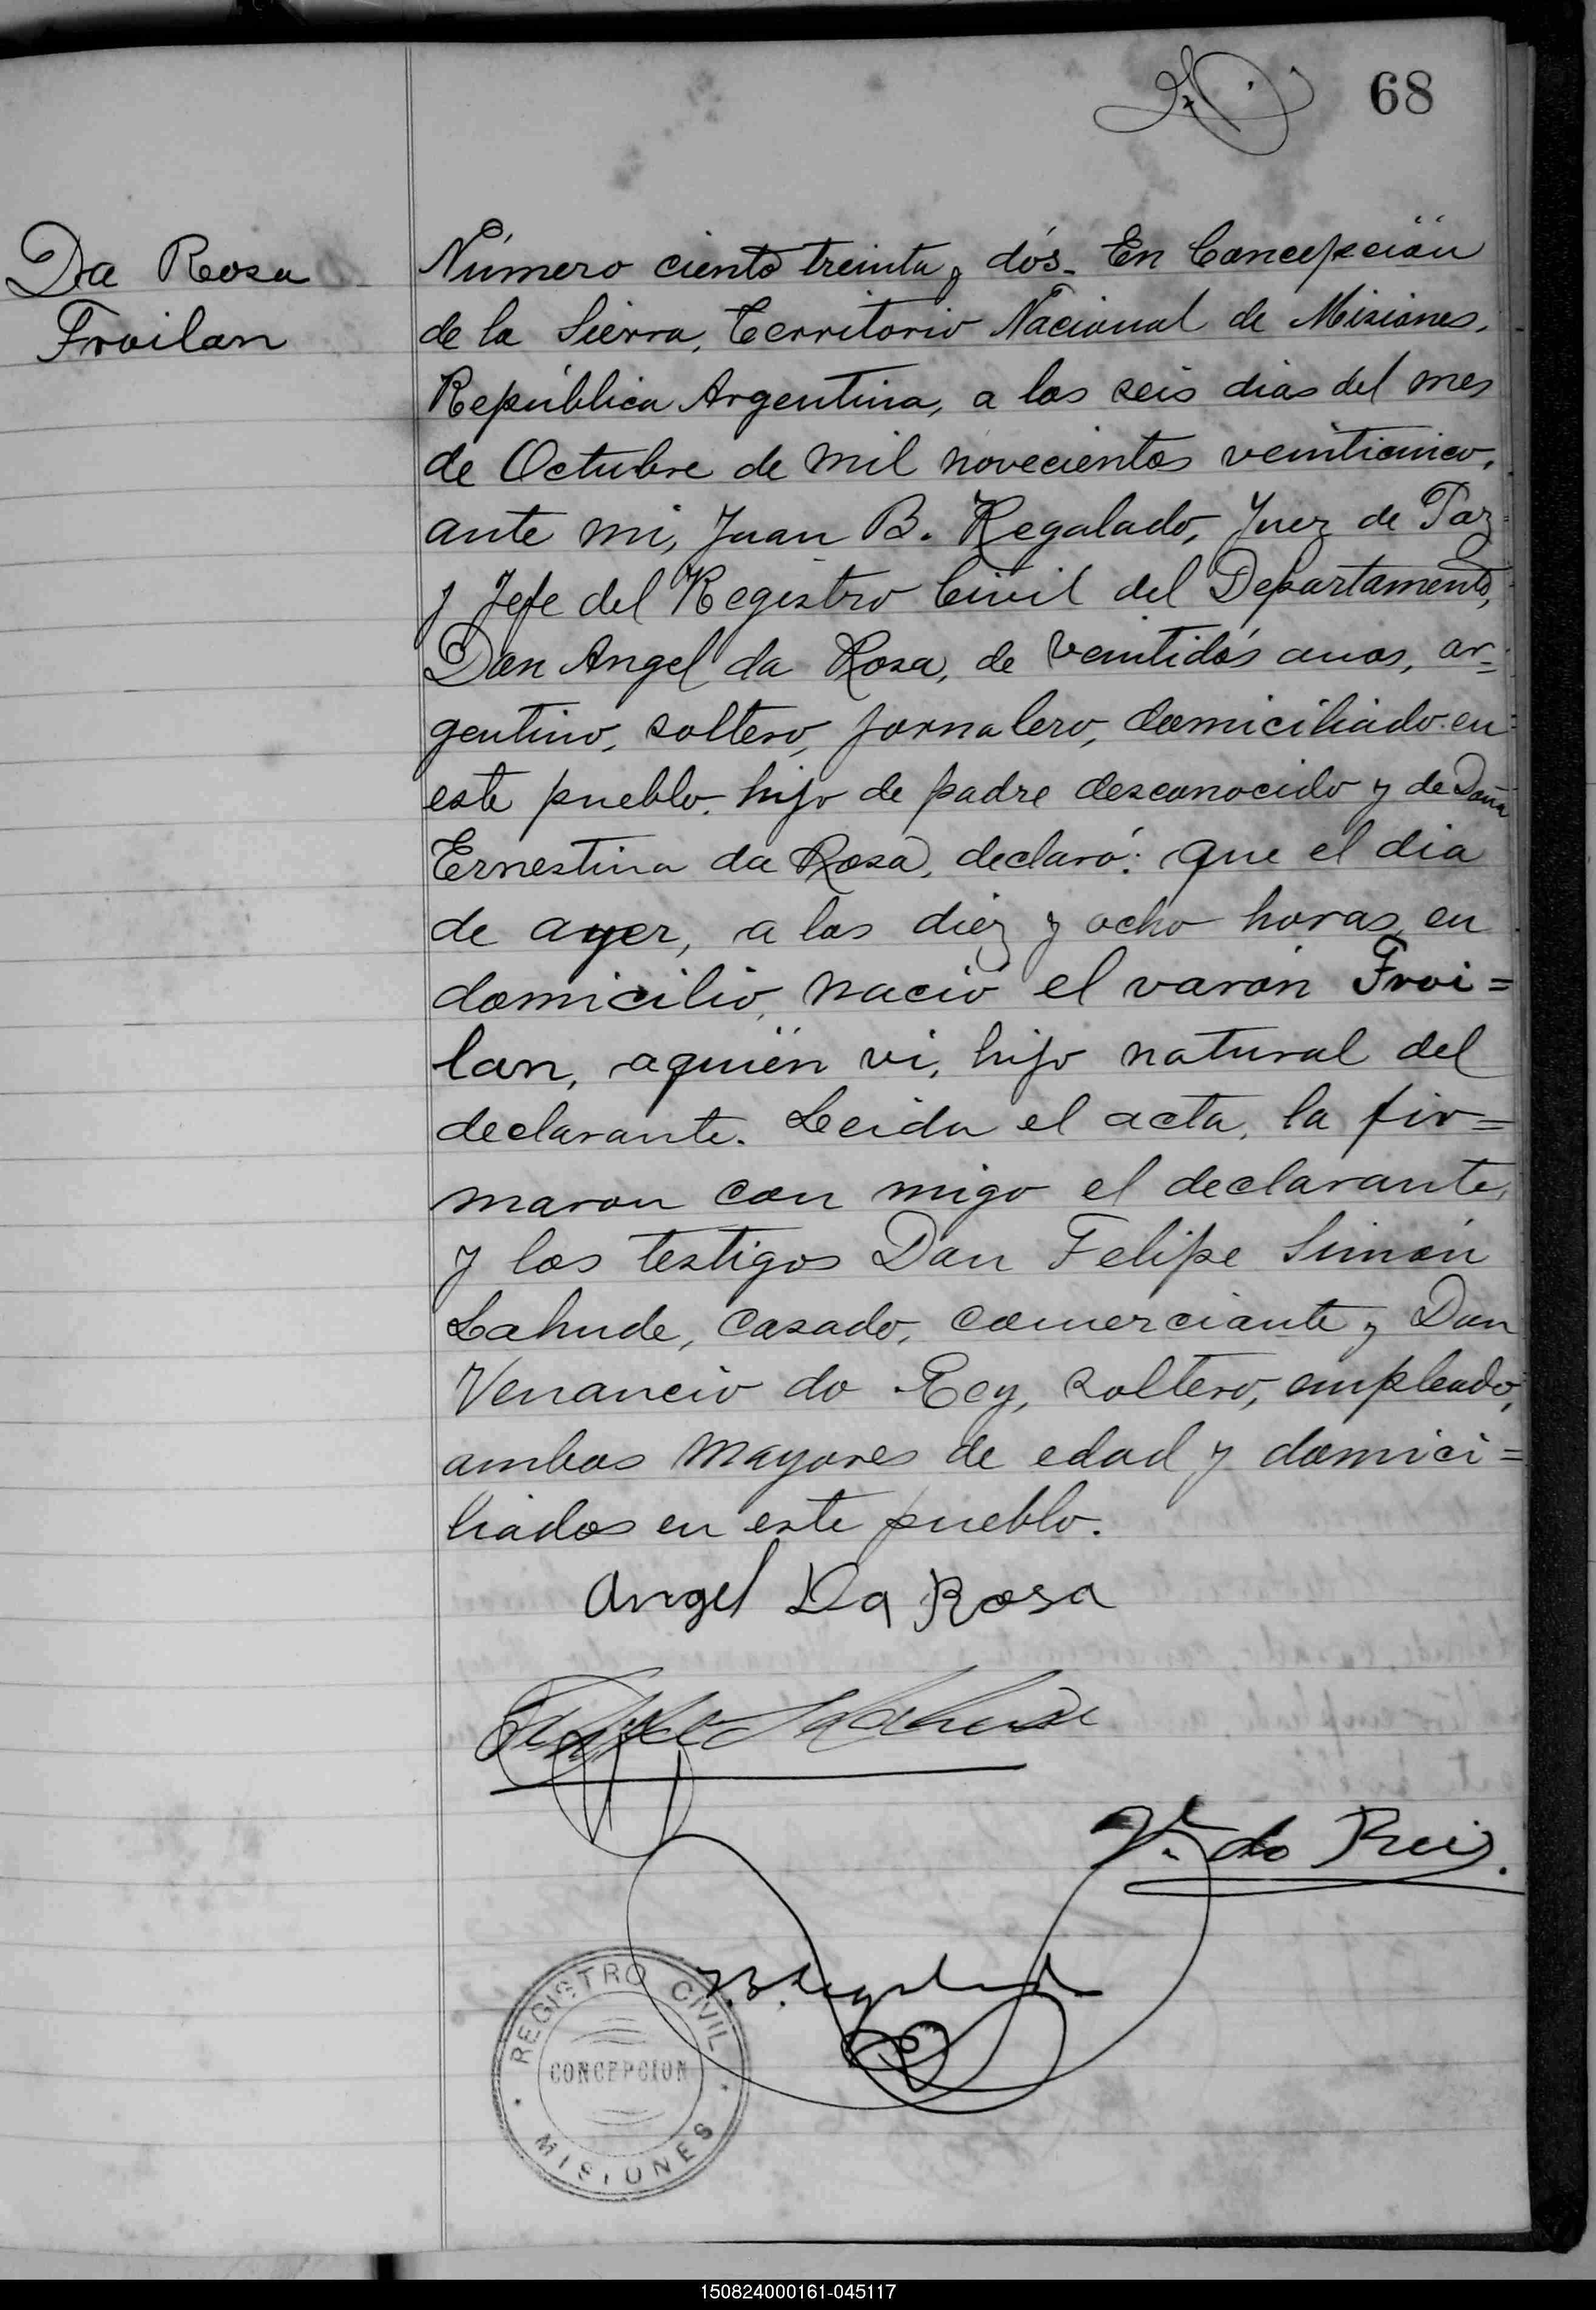 68
Da Rosa
Froilan
Número ciento treinta y dós. En Concepción
de la Sierra, Territorio Nacional de Misiones,
República Argentina, a los seis dias del mes
de Octubre de mil novecientos veinticinco,
ante mi, Juan B. Regalado, Juez de Paz
y Jefe del Registro Civil del Departamento,
Don Angel da Rosa, de veintidós anos, ar=
gentino, soltero, jornalero, domiciliado en
este pueblo, hijo de padre desconocido y de Doña
Ernestina da Rosa, declaró: que el dia
de ayer, a las diez y ocho horas, en
domicilio, nació el varón Froi=
lan, aquién vi, hijo natural del
declarante. Leida el acta, la fir=
maron con migo el declarante,
y los testigos Don Felipe Simón
Lahude, casado, comerciante y Don
Venancio do Rey, soltero, empleado,
ambos mayores de edad y domici=
liados en este pueblo.
Angel Da Rosa
V. do Rei
REGISTRO CIVIL
CONCEPCION
MISIONES
150824000161-045117